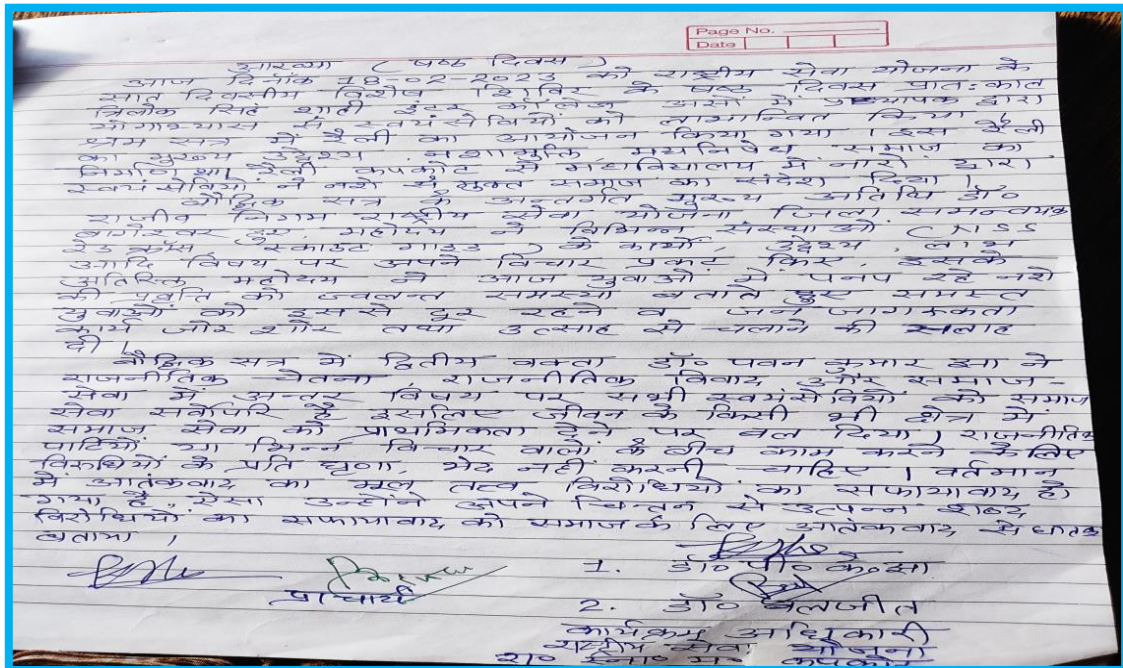 Page No.
Date
आख्या ( षष्ठ दिवस )
आज दिनांक 18-02-2023 को राष्ट्रीय सेवा योजना के
सात दिवसीय विशेष शिविर के षष्ठ दिवस प्रात:काल
त्रिलोक सिंह शाही इंटर कॉलेज असों में प्राध्यापक द्वारा
योगाभ्यास से स्वयंसेवियों को लाभान्वित किया।
श्रम सत्र में रैली का आयोजन किया गया । इस रैली
का मुख्य उद्देश्य नशामुक्ति, मद्यनिषेध समाज का
निर्माण था। रैली कपकोट से महाविद्यालय में नारों द्वारा
स्वयंसेवियों ने नशे से मुक्त समाज का संदेश दिया।
बौद्धिक सत्र के अन्तर्गत मुख्य अतिथि डॉ०
राजीव निगम राष्ट्रीय सेवा योजना जिला समन्वयक
बागेश्वर हुए, महोदय ने विभिन्न संस्थाओं (NSS
रेडक्रॉस, स्काउट गाइड ) के कार्यों, उद्देश्य, लाभ
आदि विषय पर अपने विचार प्रकट किए, इसके
अतिरिक्त महोदय ने आज युवाओं में पनप रहे नशे
की प्रवृत्ति को ज्वलन्त समस्या बताते हुए समस्त
युवाओं को इससे दूर रहने व जन जागरूकता
कार्य जोर शोर तथा उत्साह से चलाने की सलाह
दी।
बौद्धिक सत्र में द्वितीय वक्ता डॉ० पवन कुमार झा ने
राजनीतिक चेतना, राजनीतिक विवाद और समाज-
सेवा में अन्तर विषय पर सभी स्वयंसेवियों को समाज
सेवा सर्वोपरि है इसलिए जीवन के किसी भी क्षेत्र में
समाज सेवा को प्राथमिकता देने पर बल दिया। राजनीतिक
पार्टियों या भिन्न विचार वालों के बीच काम करने के लिए
विरुधियों के प्रति घृणा, भेद नहीं करनी चाहिए । वर्तमान
में आतंकवाद का मूल तत्व विरोधियों का सफायावाद हो
गया है, ऐसा उन्होंने अपने चिन्तन से उत्पन्न शब्द
विरोधियों का सफायावाद को समाज के लिए आतंकवाद से घातक
बताया ।
1. डॉ० पी० के० झा
प्राचार्य
2. डॉ० बलजीत
कार्यक्रम अधिकारी
राष्ट्रीय सेवा योजना
रा० स्ना० म० कपकोट